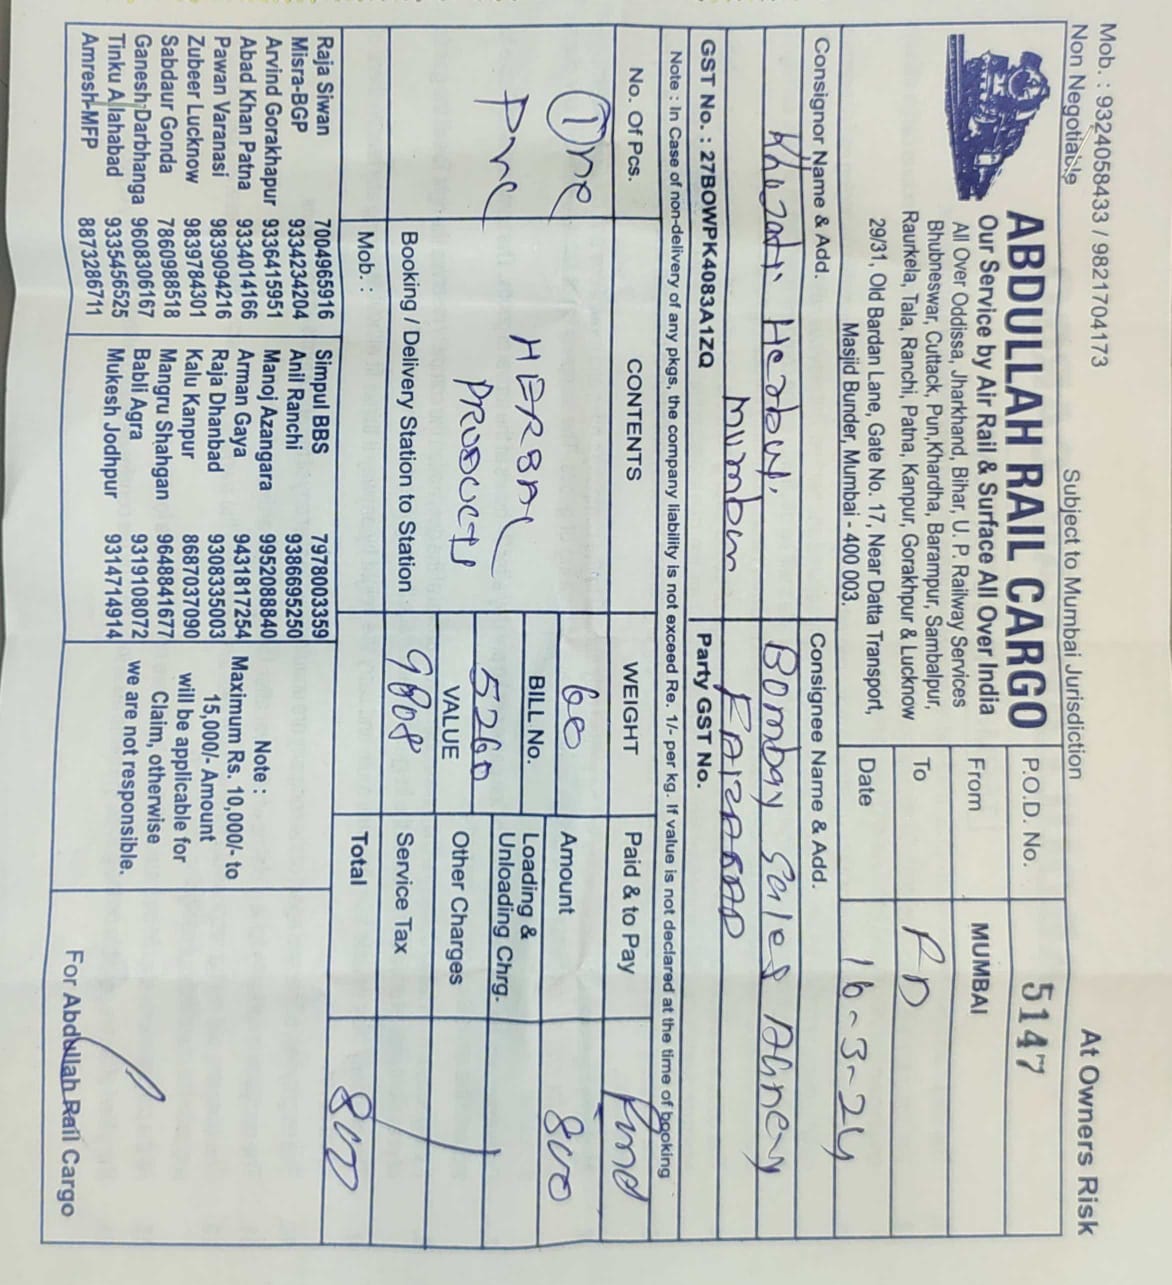 Mob. : 9324058433 / 9821704173
Non Negotiable
Subject to Mumbai Jurisdiction
At Owners Risk
ABDULLAH RAIL CARGO
Our Service by Air Rail & Surface All Over India
All Over Oddissa, Jharkhand, Bihar, U. P. Railway Services
Bhubneswar, Cuttack, Puri,Khardha, Barampur, Sambalpur,
Raurkela, Tala, Ranchi, Patna, Kanpur, Gorakhpur & Lucknow
29/31, Old Bardan Lane, Gate No. 17, Near Datta Transport,
Masjid Bunder, Mumbai - 400 003.
P.O.D. No. 5147
From MUMBAI
To RD
Date 16-3-24
Consignor Name & Add.
Herbul,
Mumbai
Consignee Name & Add.
Bombay Sales
GST No. : 27BOWPK4083A1ZQ
Party GST No.
Note : In Case of non-delivery of any pkgs, the company liability is not exceed Re. 1/- per kg. If value is not declared at the time of booking
No. Of Pcs. CONTENTS WEIGHT Paid & to Pay
1 One
HERBAL
PRODUCTS
60
Amount 800
BILL No.
5260
Loading &
Unloading Chrg.
VALUE
9808
Other Charges
Booking / Delivery Station to Station
Service Tax
Mob. :
Total 800
Raja Siwan 7004965916
Misra-BGP 9334234204
Arvind Gorakhapur 9336415951
Abad Khan Patna 9334014166
Pawan Varanasi 9839094216
Zubeer Lucknow 9839784301
Sabdaur Gonda 7860988518
Ganesh Darbhanga 9608306167
Tinku Allahabad 9335456525
Amresh-MFP 8873286711
Simpul BBS 7978003359
Anil Ranchi 9386695250
Manoj Azangara 9952088840
Arman Gaya 9431817254
Raja Dhambad 9308335003
Kalu Kanpur 8687037090
Mangru Shahgan 9648841677
Babli Agra 9319108072
Mukesh Jodhpur 9314714914
Note :
Maximum Rs. 10,000/- to
15,000/- Amount
will be applicable for
Claim, otherwise
we are not responsible.
For Abdullah Rail Cargo